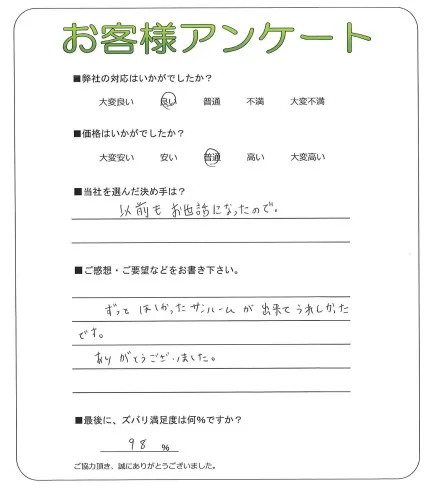 お客様アンケート
■弊社の対応はいかがでしたか？
大変良い 良い 普通 不満 大変不満
■価格はいかがでしたか？
大変安い 安い 普通 高い 大変高い
■当社を選んだ決め手は？
以前もお世話になったので。
■ご感想・ご要望などをお書き下さい。
ずっとほしかったサンルームが出来てうれしかった
です。
ありがとうございました。
■最後に、ズバリ満足度は何%ですか？
98 %
ご協力頂き、誠にありがとうございました。